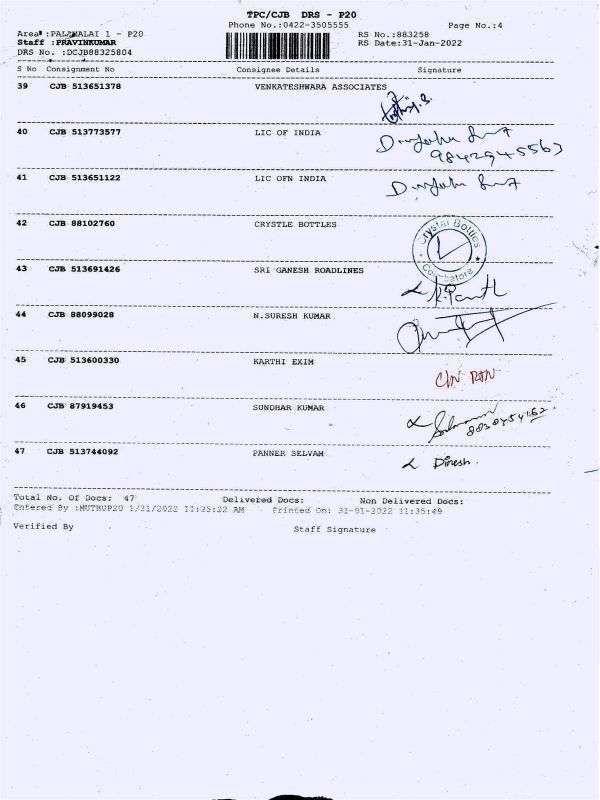 TPC/CJB DRS - P20
Phone No.:0422-3505555
Page No.:4
Area :PALAMALAI 1 - P20
RS No.:883258
Staff :PRAVINKUMAR
RS Date:31-Jan-2022
DRS No. :DCJB88325804
S No Consignment No Consignee Details Signature
39 CJB 513651378 VENKATESHWARA ASSOCIATES
40 CJB 513773577 LIC OF INDIA
9842945563
41 CJB 513651122 LIC OFN INDIA
42 CJB 88102760 CRYSTLE BOTTLES
Crystal Bottles
Coimbatore
43 CJB 513691426 SRI GANESH ROADLINES
44 CJB 88099028 N.SURESH KUMAR
45 CJB 513600330 KARTHI EXIM
46 CJB 87919453 SUNDHAR KUMAR
47 CJB 513744092 PANNER SELVAM
Dinesh.
Total No. Of Docs: 47 Delivered Docs: Non Delivered Docs:
Entered By :MUTHUP20 1/31/2022 11:35:22 AM Printed On: 31-01-2022 11:35:49
Verified By Staff Signature